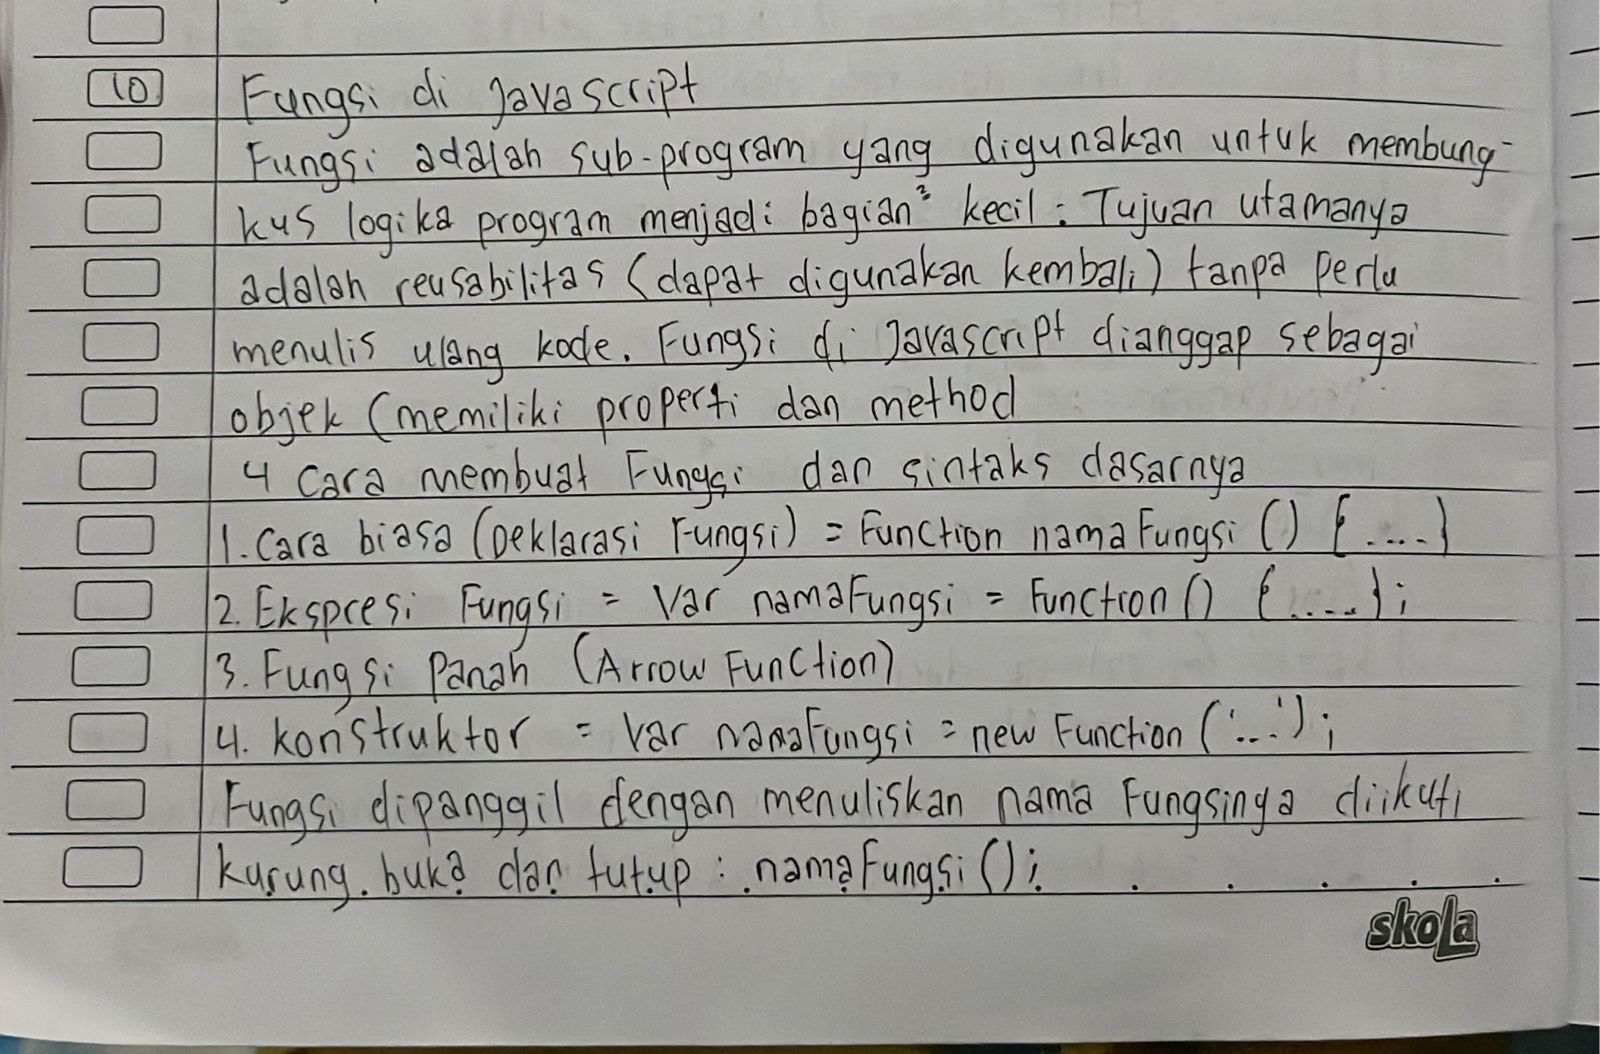 10 Fungsi di Javascript
Fungsi adalah sub-program yang digunakan untuk membung-
kus logika program menjadi bagian² kecil. Tujuan utamanya
adalah reusabilitas (dapat digunakan kembali) tanpa perlu
menulis ulang kode. Fungsi di Javascript dianggap sebagai
objek (memiliki properti dan method
4 Cara membuat Fungsi dan sintaks dasarnya
1. Cara biasa (Deklarasi Fungsi) = Function nama Fungsi () {....}
2. Ekspresi Fungsi = Var namaFungsi = Function () {....};
3. Fungsi Panah (Arrow Function)
4. Konstruktor = Var namaFungsi = new Function ('...');
Fungsi dipanggil dengan menuliskan nama Fungsinya diikuti
kurung buka dan tutup : nama Fungsi ();
skola